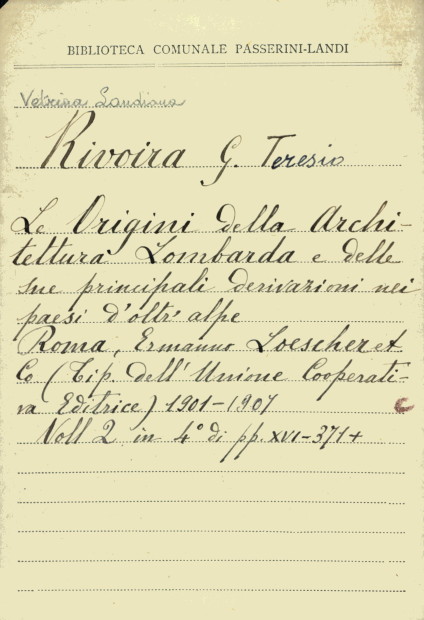 BIBLIOTECA COMUNALE PASSERINI-LANDI
Vetrina Landiana
Rivoira G. Teresio
Le Origini della Archi-
tettura Lombarda e delle
sue principali derivazioni nei
paesi d'oltr'alpe
Roma, Ermanno Loescher et
Co (Tip. dell'Unione Cooperati-
va Editrice) 1901-1907
Voll 2 in 4° di pp. XVI-371+